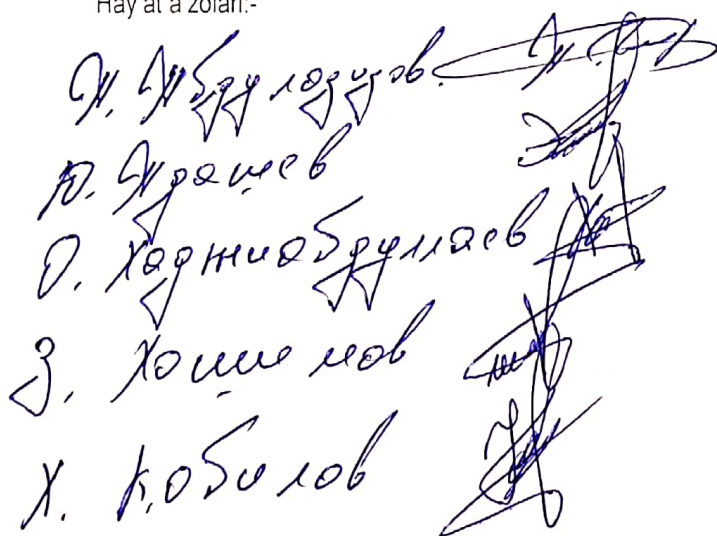 Hay'at a'zolari:-
И. Абдулазизов.
Ю. Идашев
О. Хаджиабдуллаев
З. Хошимов
Х. Кобилов